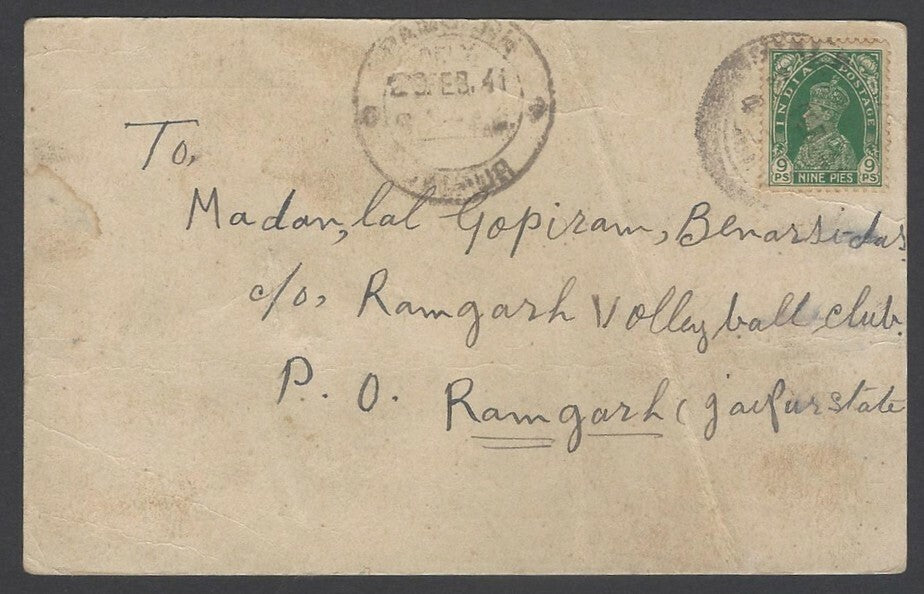 DELY.
23. FEB. 41
INDIA POSTAGE
9 PS NINE PIES 9 PS
To,
Madan,lal Gopiram, Benarsidas
c/o, Ramgarh Volleyball club
P. O. Ramgarh (jaipur state